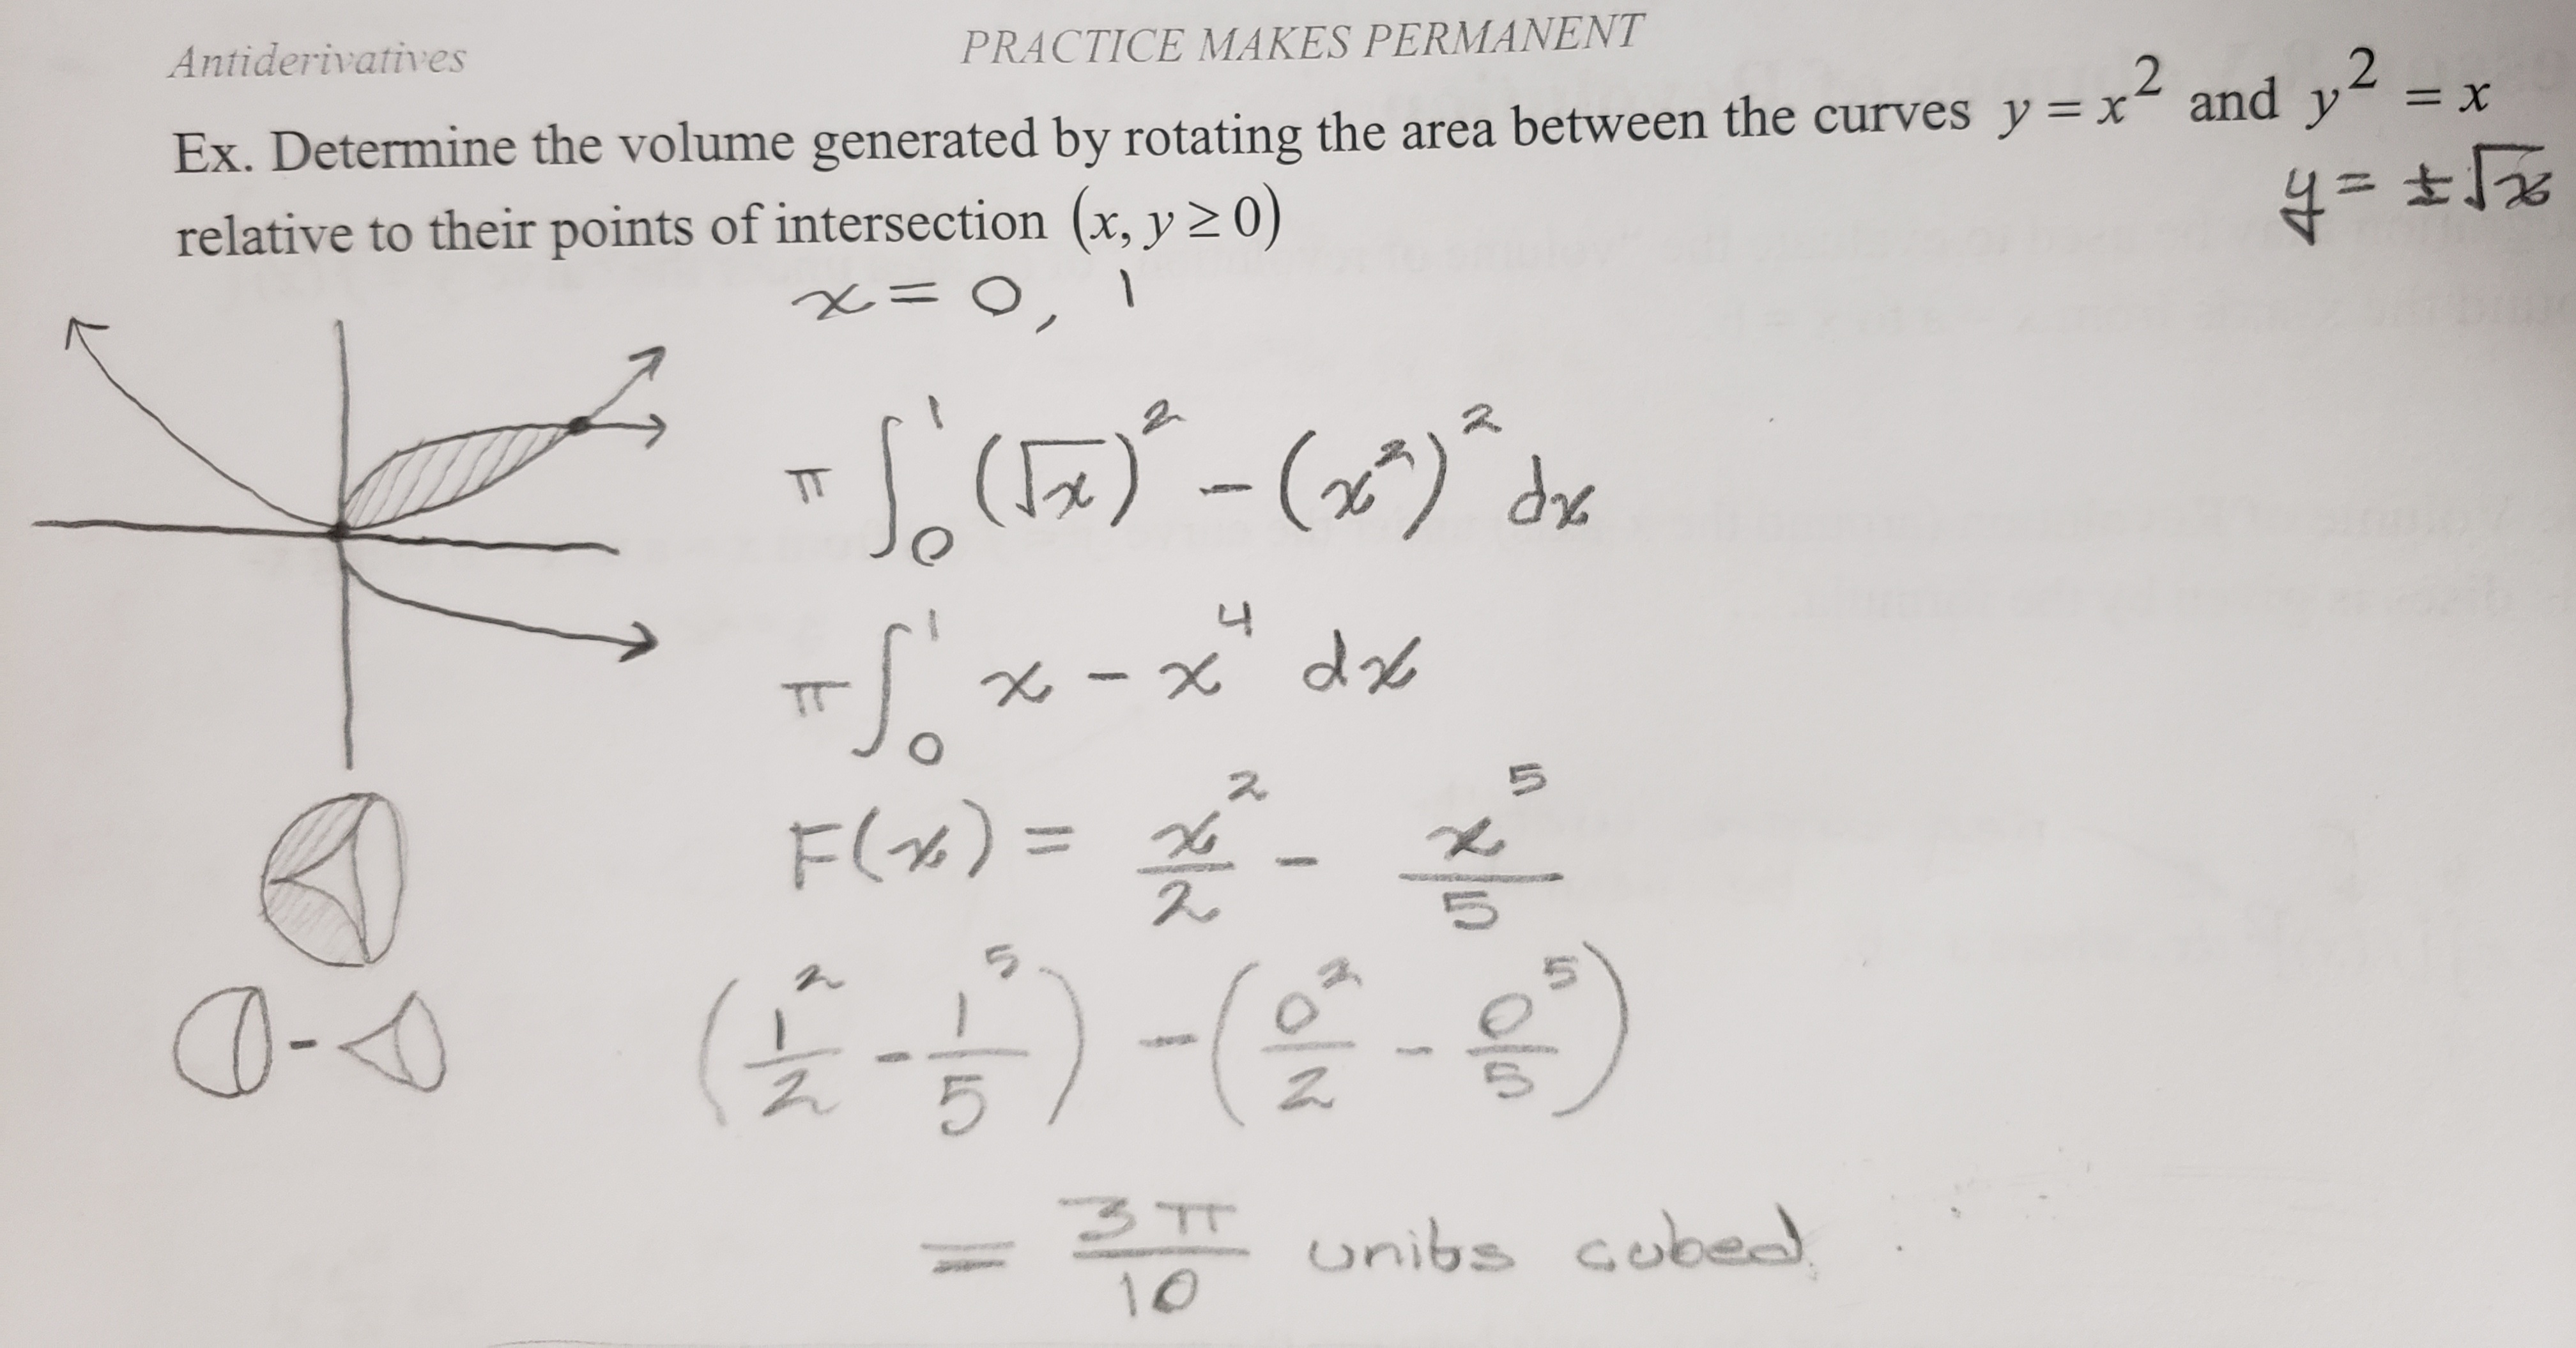 Antiderivatives PRACTICE MAKES PERMANENT
Ex. Determine the volume generated by rotating the area between the curves y = x² and y² = x
y = ±√x
relative to their points of intersection (x, y ≥ 0)
x = 0, 1
π ∫₀¹ (√x)² - (x²)² dx
π ∫₀¹ x - x⁴ dx
F(x) = x²/2 - x⁵/5
(1²/2 - 1⁵/5) - (0²/2 - 0⁵/5)
= 3π/10 units cubed.